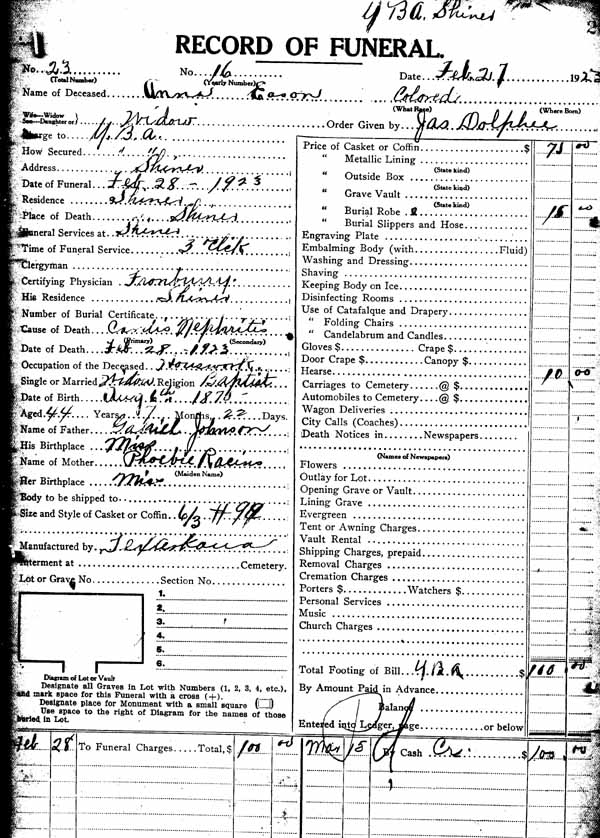 Y B A. Shiner
2
RECORD OF FUNERAL.
No. 23 No. 16 Date Feb. 27 1923
(Total Number) (Yearly Number)
Name of Deceased Anna Eason Colored
(What Race) (Where Born)
Wife—Widow
Son—Daughter or) Widow Order Given by Jas. Dolphee
Charge to Y. B. A.
How Secured " "
Address Shiner
Date of Funeral Feb 28 - 1923
Residence Shiner
Place of Death Shiner
Funeral Services at Shiner
Time of Funeral Service 3 Clck
Clergyman
Certifying Physician
His Residence Shiner
Number of Burial Certificate
Cause of Death Cardis Nephritis
(Primary) (Secondary)
Date of Death Feb 28 1923
Occupation of the Deceased Housework
Single or Married Widow Religion Baptist
Date of Birth Aug 6th 1870 -
Aged 44 Years 7 Months 22 Days.
Name of Father Gabriel Johnson
His Birthplace Miss
Name of Mother Phoebie Racins
(Maiden Name)
Her Birthplace Miss
Body to be shipped to
Size and Style of Casket or Coffin 6/3 # 99
Manufactured by Texarkana
Interment at Cemetery.
Lot or Grave No. Section No.
1.
2.
3.
4.
5.
6.
Diagram of Lot or Vault
Designate all Graves in Lot with Numbers (1, 2, 3, 4, etc.),
and mark space for this Funeral with a cross (+).
Designate place for Monument with a small square
Use space to the right of Diagram for the names of those
buried in Lot.
Price of Casket or Coffin $ 75 00
" Metallic Lining
(State kind)
" Outside Box
(State kind)
" Grave Vault
(State kind)
" Burial Robe 15 00
" Burial Slippers and Hose
Engraving Plate
Embalming Body (with Fluid)
Washing and Dressing
Shaving
Keeping Body on Ice
Disinfecting Rooms
Use of Catafalque and Drapery
" Folding Chairs
" Candelabrum and Candles
Gloves $ Crape $
Door Crape $ Canopy $
Hearse 10 00
Carriages to Cemetery @ $
Automobiles to Cemetery @ $
Wagon Deliveries
City Calls (Coaches)
Death Notices in Newspapers
(Names of Newspapers)
Flowers
Outlay for Lot
Opening Grave or Vault
Lining Grave
Evergreen
Tent or Awning Charges
Vault Rental
Shipping Charges, prepaid
Removal Charges
Cremation Charges
Porters $ Watchers $
Personal Services
Music
Church Charges
Total Footing of Bill Y. B. A $ 100 00
By Amount Paid in Advance
Balance
Entered into Ledger, page or below
Feb 28 To Funeral Charges Total, $ 100 00 Mar 15 By Cash Cr. $ 100 00